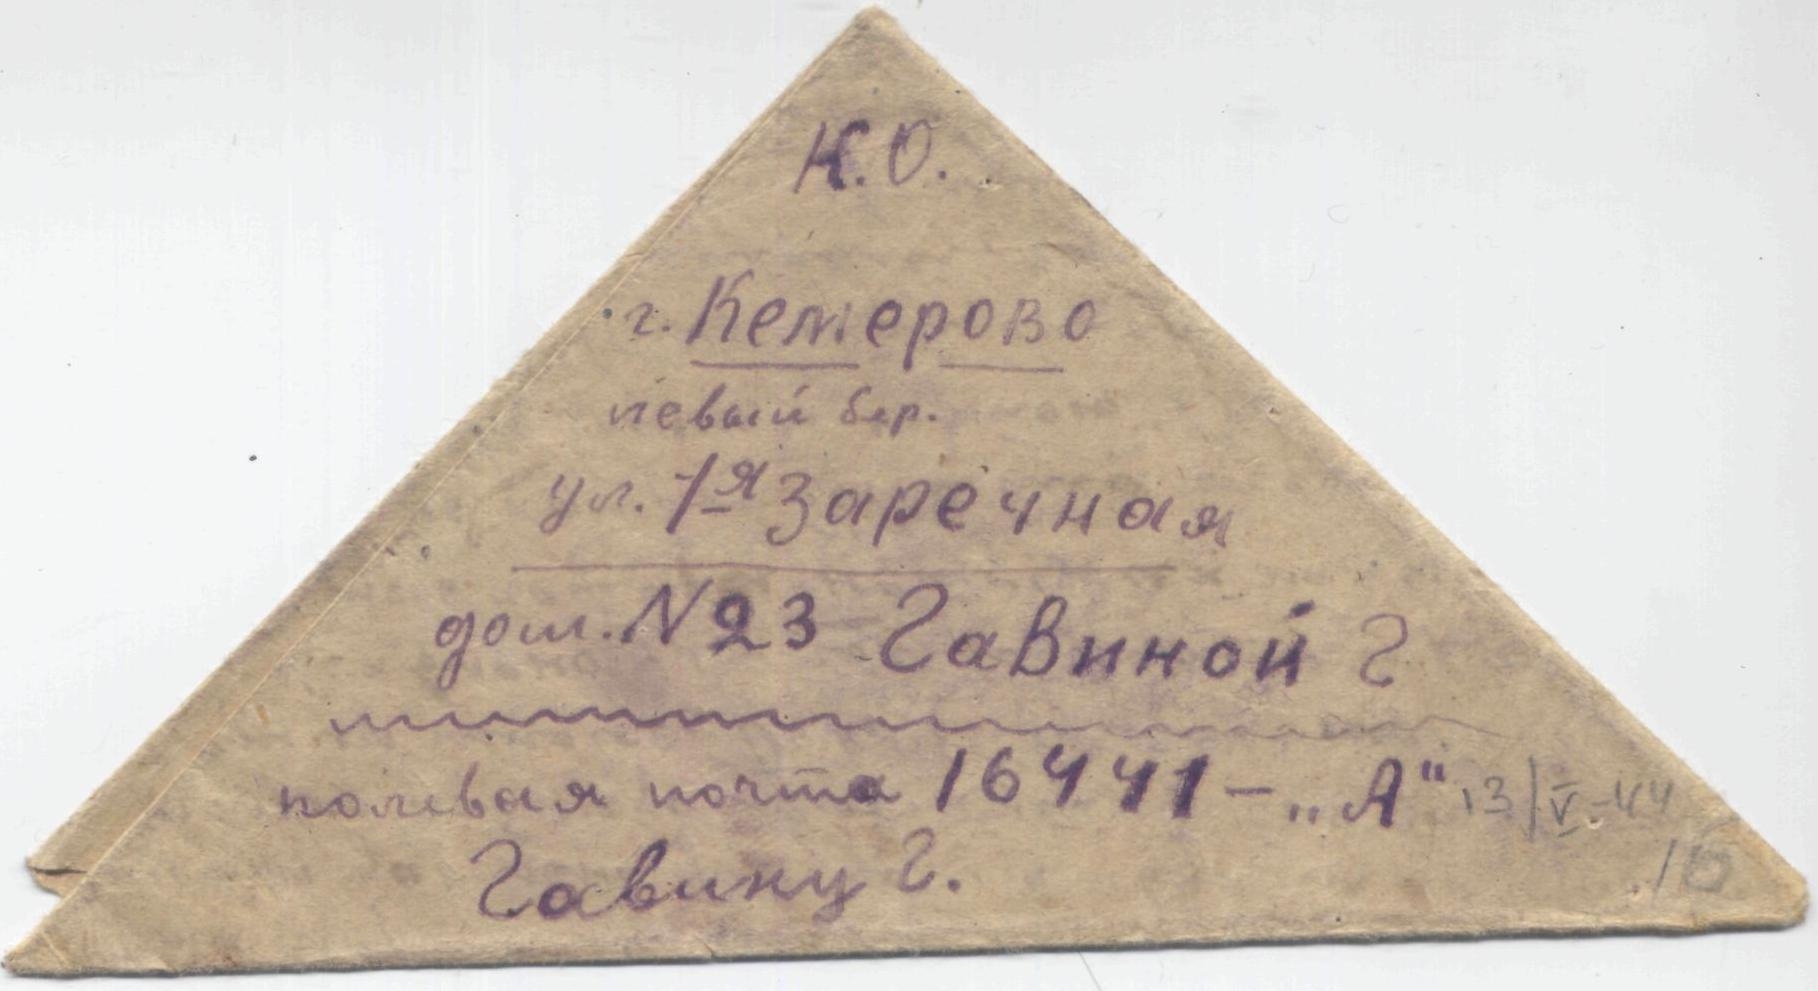 К.О.
г. Кемерово
левый бер.
ул. 1-я Заречная
дом. N 23 Гавиной Г
полевая почта 16441 – „А“ 13/V-44
16
Гавину Г.